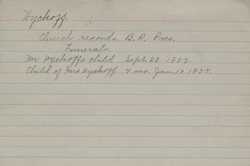 Wyckoff
Church records B. R. Pres.
Funerals
Mr Wyckoff's child Sept. 28 1853.
Child of Mrs Wyckoff 9 mo. Jan. 10 1855.